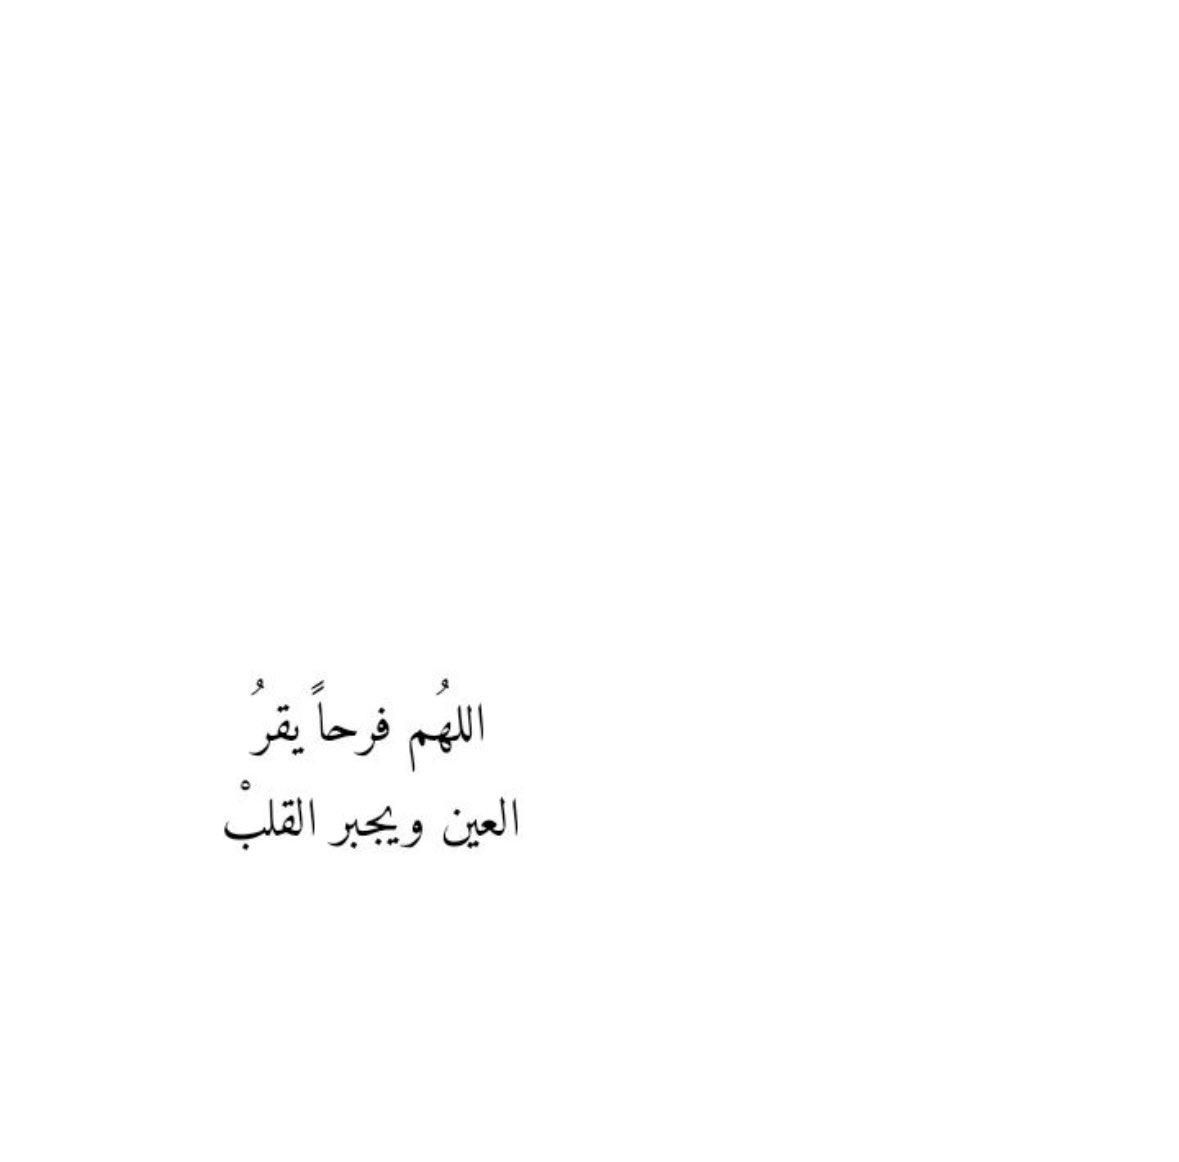 اللهُم فرحاً يقرُ
العين ويجبر القلبْ